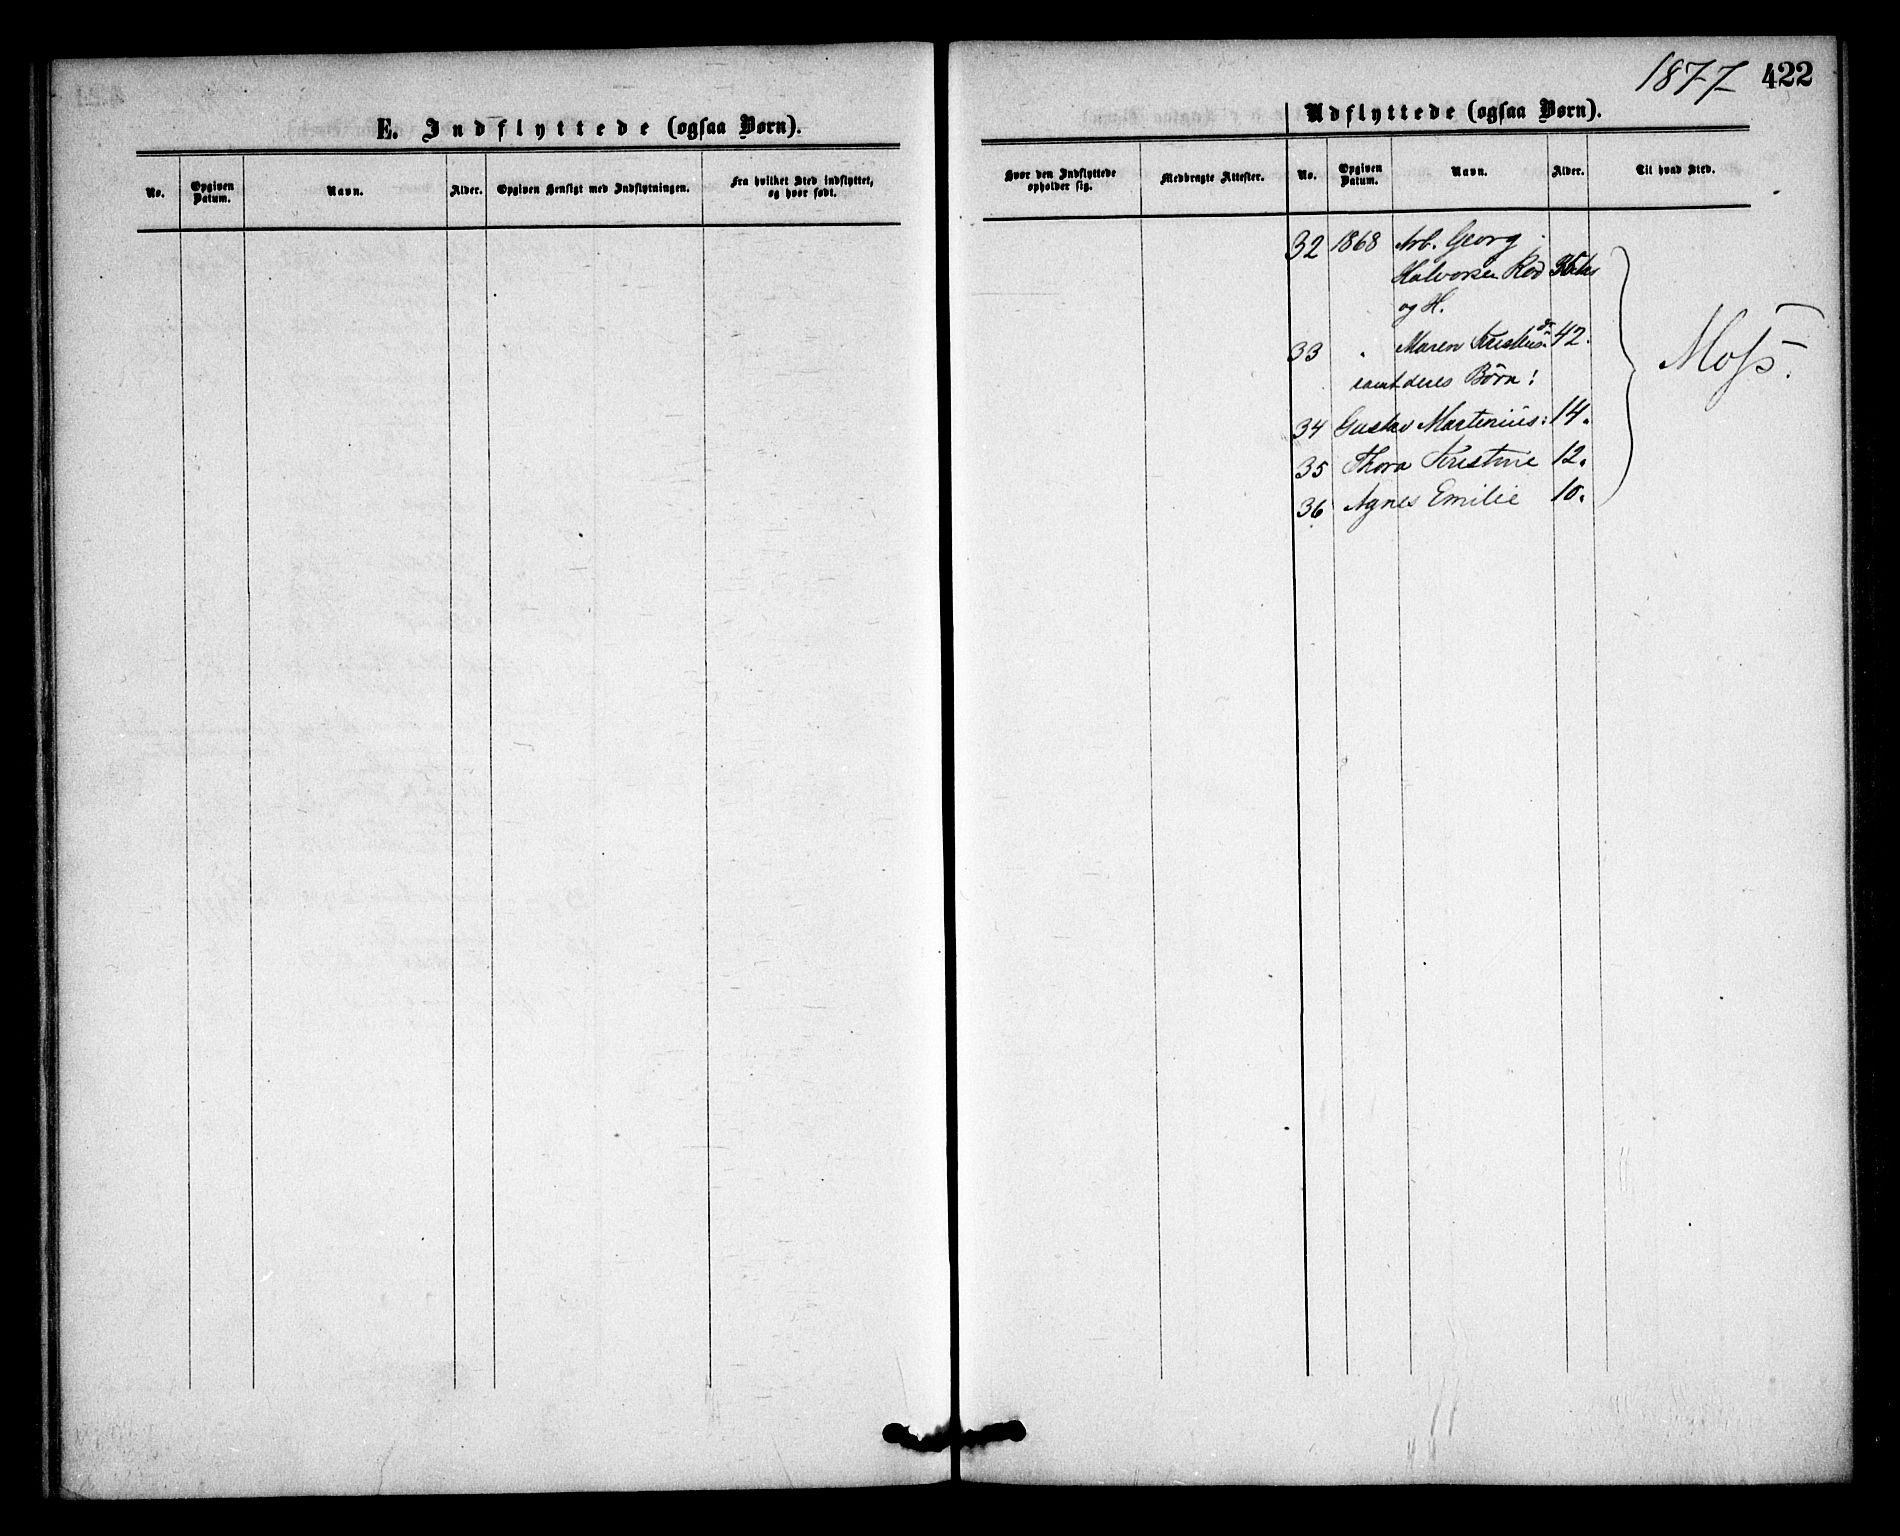 1877 422
E. Indflyttede (ogsaa Børn).
No.
Opgiven Datum.
Navn.
Alder.
Opgiven Hensigt med Indflytningen.
Fra hvilket Sted indflyttet, og hvor født.
Udflyttede (ogsaa Børn).
Hvor den Indflyttede opholder sig.
Medbragte Attester.
No.
Opgiven Datum.
Navn.
Alder.
Til hvad Sted.
32 1868 Arb. Georg
Halvorsen Rød
og H.
33 " Maren Kristiansdr 42.
samt deres Børn:
34 Gustav Martinius: 14.
35 Thora Kristine 12.
36 Agnes Emilie 10.
Moss.